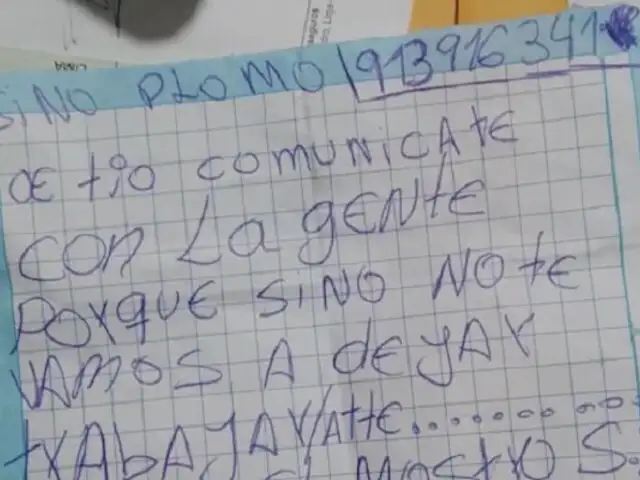 SiNO PLOMO 913916341
DE tio comuNiCAtE
CON La gENtE
PORQUE SiNO NO tE
VAMOS A dEJAR
tRAbAJAR/Atte.............
MOStROS.